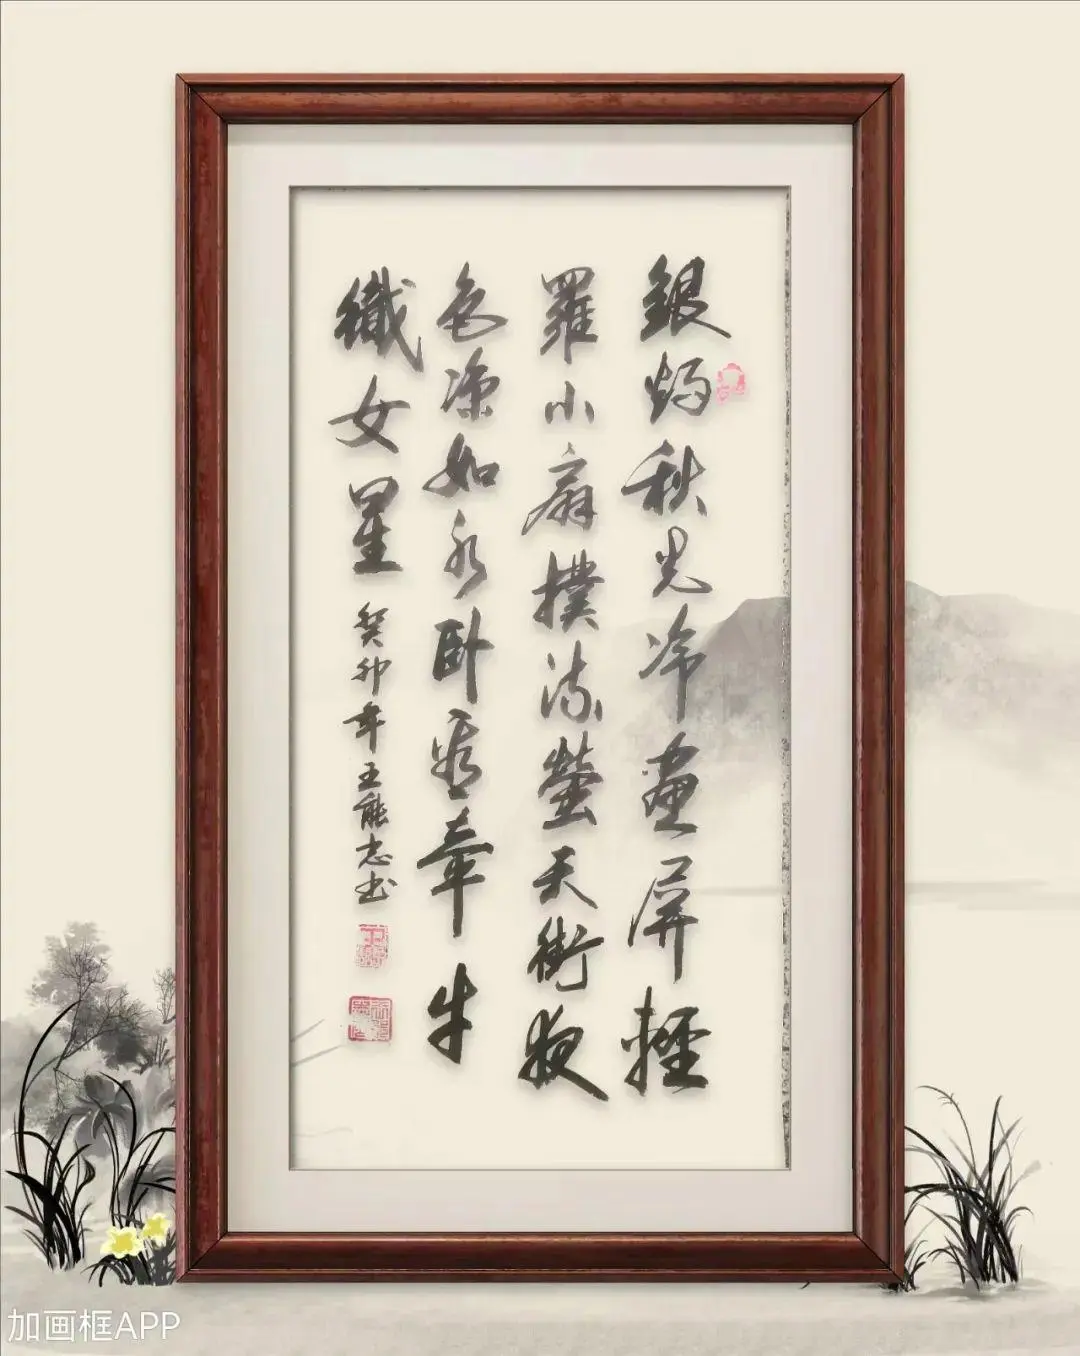 銀燭秋光冷畫屏輕
羅小扇撲流螢天街夜
色涼如水卧看牽牛
織女星
癸卯年王能志书
加画框APP